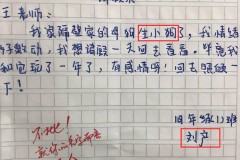 王老师:
我家隔壁家的母狗生小狗了,我情绪
激动,我想请假一天回去看看。毕竟我
和它玩了一年了,有感情啊!回去照顾一
下!
不批!
级(1)班
刘产